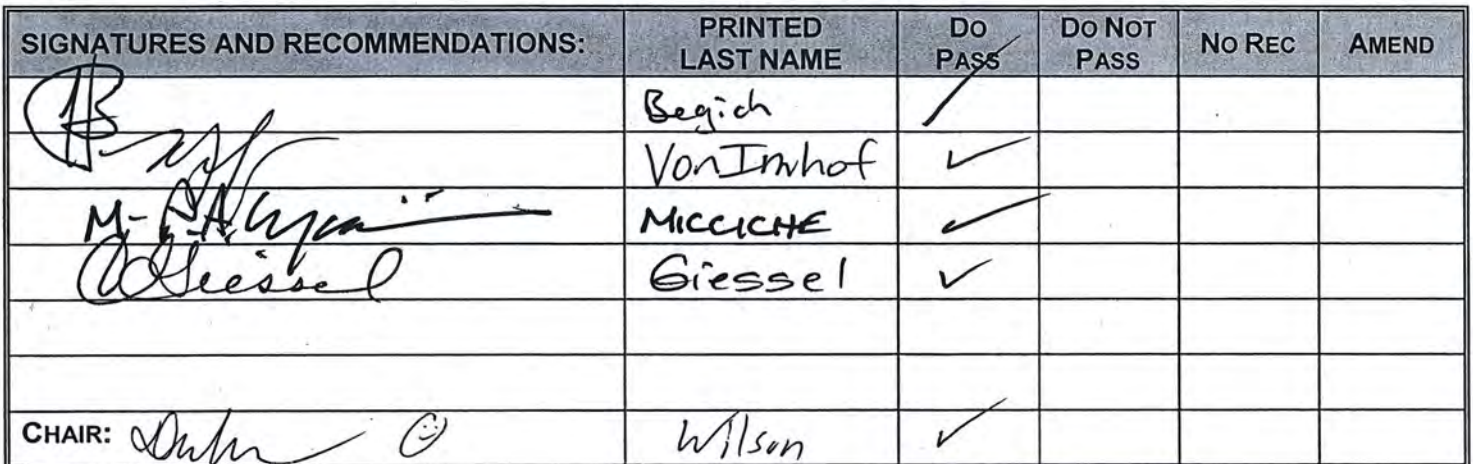 SIGNATURES AND RECOMMENDATIONS: PRINTED LAST NAME DO PASS DO NOT PASS NO REC AMEND
Begich ✓
VonImhof ✓
MICCICHE ✓
Giessel Giessel ✓
CHAIR: Wilson ✓